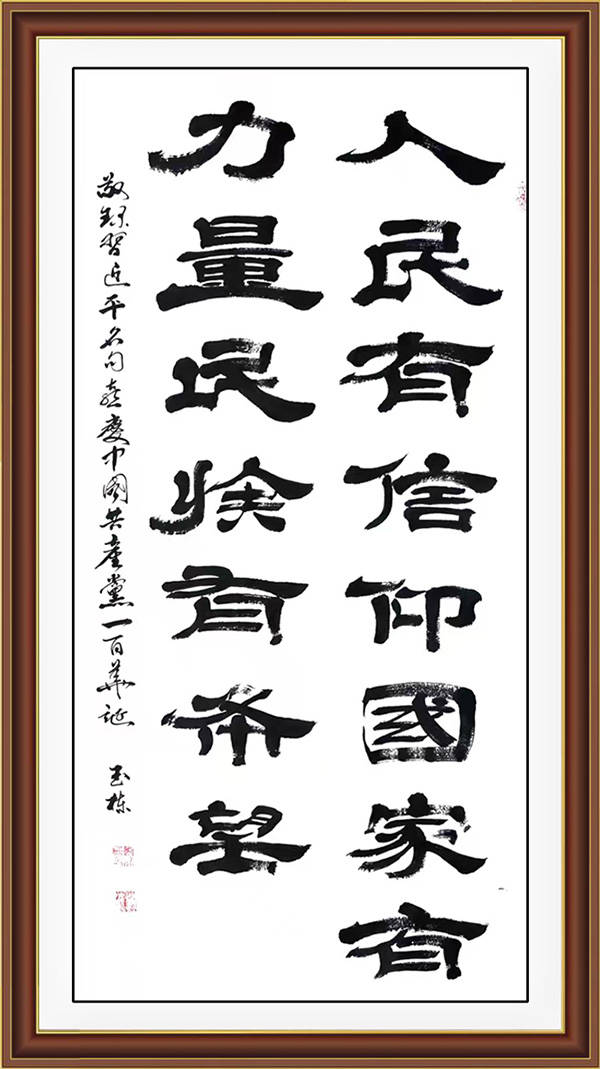 人民有信仰國家有
力量民族有希望
敬錄習近平名句喜慶中國共產黨一百華誕 玉栋